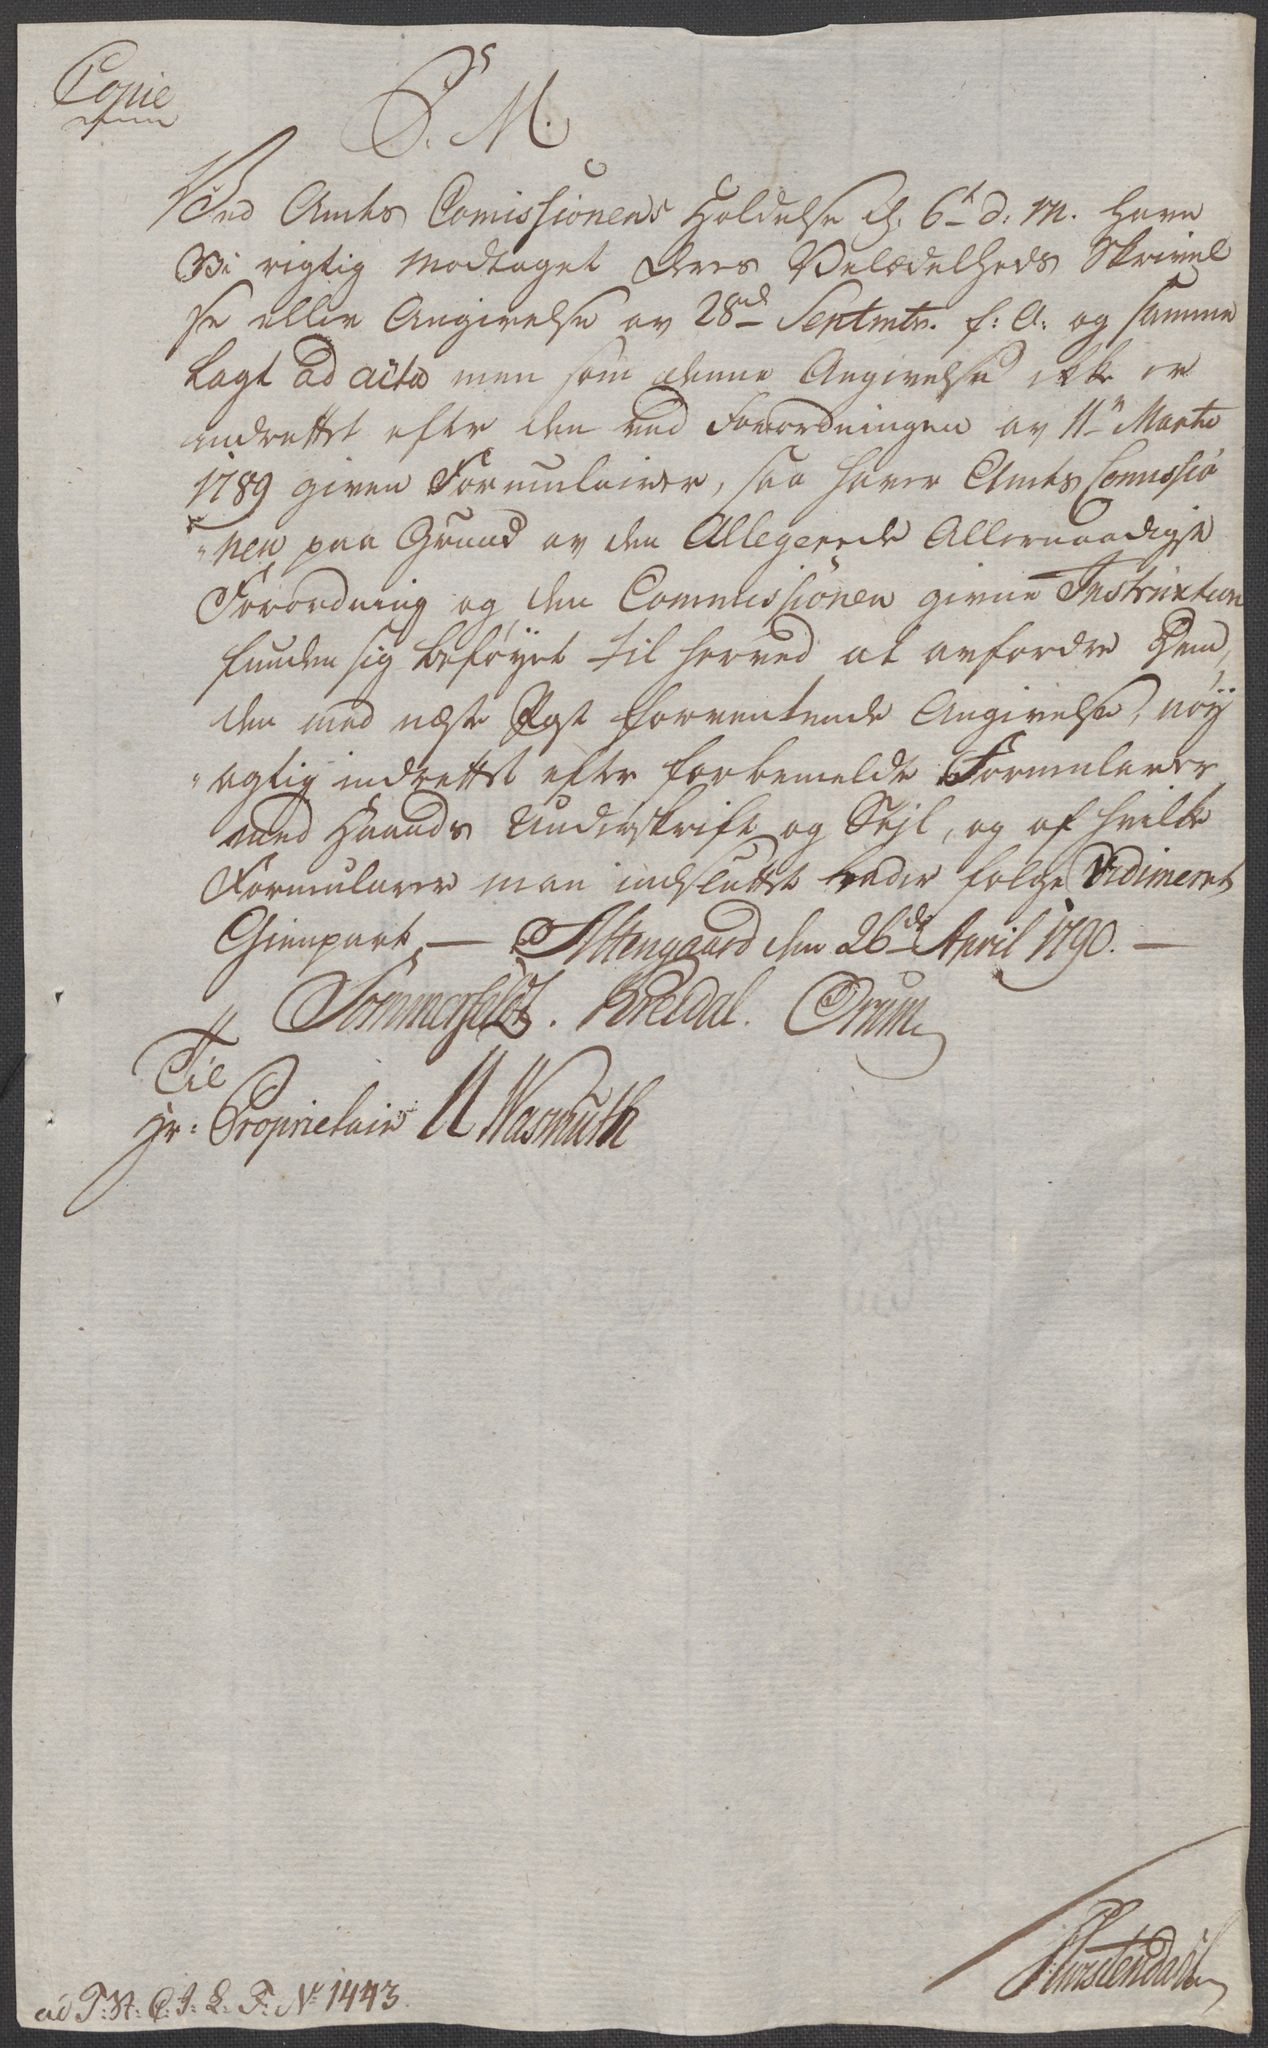 Copie
P. M.
Ved Amts Comissionens Holdelse d. 6t d: M. have
Vi rigtig Modtaget Deres Velædelheds Skrivel
se eller Angivelse av 28de Septmtr. f: A: og samme
Lagt ad acta men som denne Angivelse ikke er
indrettet efter den ved Forordningen av 11n Martz
1789 given Formulairer, saa haver Amts Comissio
"nen paa Grund av den Allegerede Allernaadigst
Forordning og den Commissionen givne Instruxtion
funden sig beføyet til herved at anfordre Dem,
den med næste Post forventende Angivelse, nøy
"agtig indrettet efter forbemeldte Formularer
med Haands Underskrift og Sejl, og af hvilke
Formularer man indsluttet lader følge Vidimeret
Gienpart. — Altengaard den 26de April 1790. —
Sommerfeldt. Kreidal. Ørum
Til
Hr: Proprietair U Wasmuth
ad P: N: C: J: L: F: No 1443.